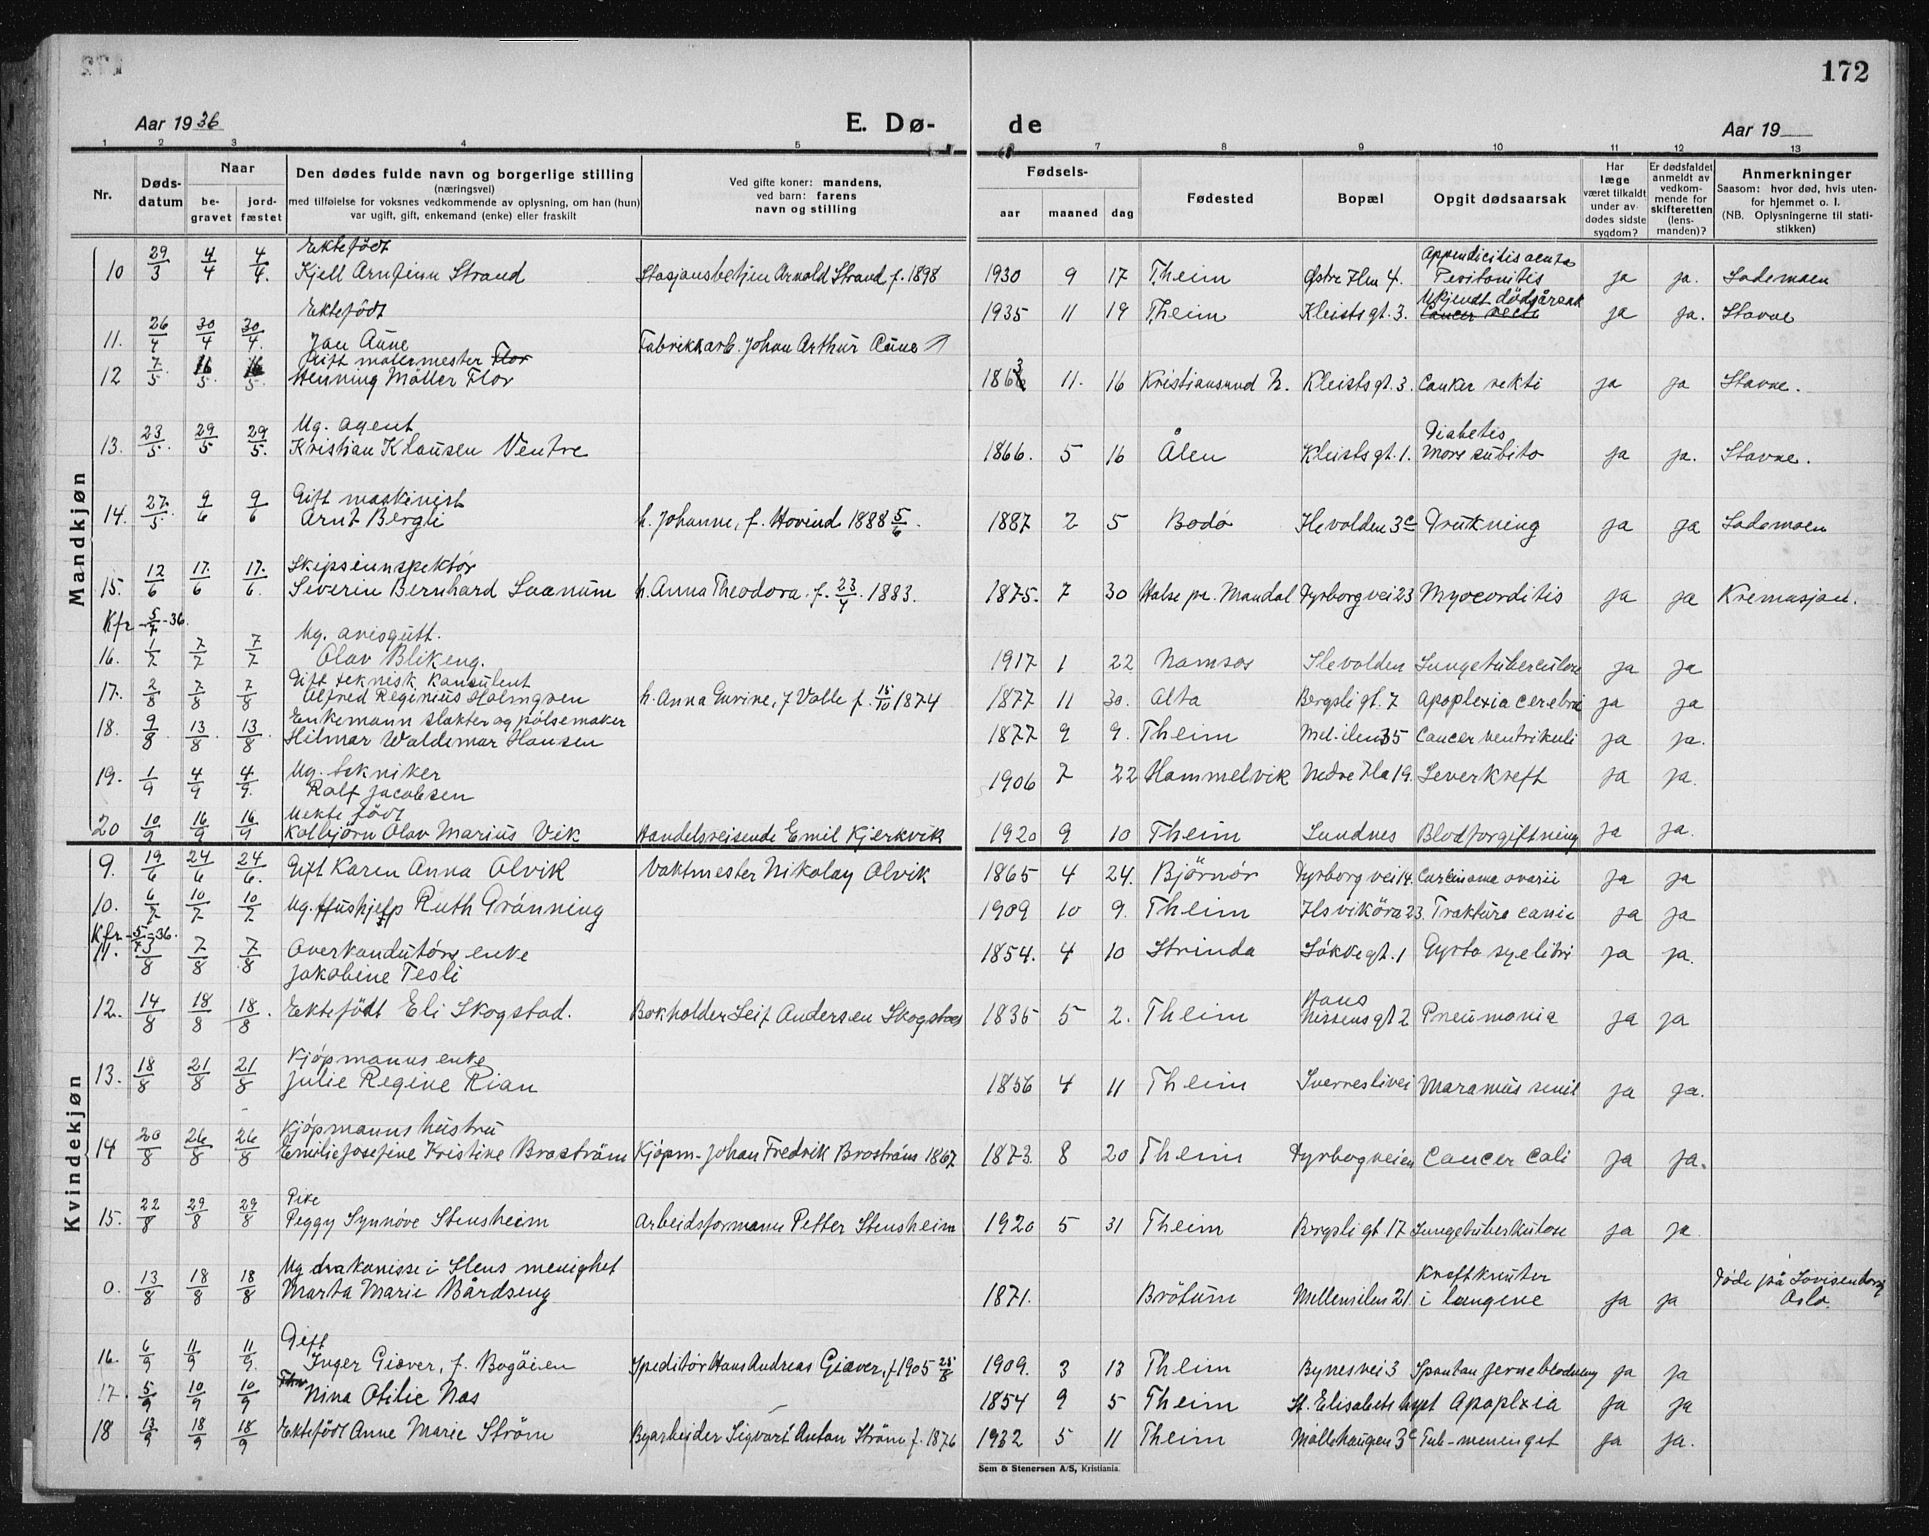 172
Aar 1936
E. Dø-
de
Aar 19
1 2 3 4 5 6 7 8 9 10 11 12 13
Nr.
Døds-
datum
Naar
be-
gravet
jord-
fæstet
Den dødes fulde navn og borgerlige stilling
(næringsvei)
med tilføielse for voksnes vedkommende av oplysning, om han (hun)
var ugift, gift, enkemand (enke) eller fraskilt
Ved gifte koner: mandens,
ved barn: farens
navn og stilling
Fødsels-
aar maaned dag
Fødested
Bopæl
Opgit dødsaarsak
Har
læge
været tilkaldt
under av-
dødes sidste
sygdom?
Er dødsfaldet
anmeldt av
vedkom-
mende for
skifteretten
(lens-
manden)?
Anmerkninger
Saasom: hvor død, hvis uten-
for hjemmet o. l.
(NB. Oplysningerne til stati-
stikken)
Mandkjøn
Ektefödt Appendicitis acuta
10 29/3 4/4 4/4 Kjell Arnfinn Strand Stasjonsbetjen Arnold Strand f. 1898 1930 9 17 Theim Østre Ilen 4. Peritonitis ja ja. Lademoen
Ektefödt Ukjendt dödsårsak
11. 26/4 30/4 30/4 Jan Aune Fabrikkarb. Johan Arthur Aune 1935 11 19 Theim Kleistsgt. 3. Cancer recti ja ja. Stavne
Gift malermester Flor
12 7/5 16/5 16/5 Henning Möller Flor 1863 11. 16 Kristiansund N. Kleistsgt. 3. Canker rekti ja ja Stavne.
Ug. agent Diabetis
13. 23/5 29/5 29/5 Kristian Klausen Ventre 1866. 5 16 Ålen Kleistsgt. 1. Mors subito ja ja. Stavne.
Gift maskinist
14. 27/5 9/6 9/6 Arnt Bergli h. Johanne, f. Hovind 1888 5/6. 1887 2 5 Bodø Ilevolden 3c Drukning ja ja Lademoen
Skipsinnspektör
15. 12/6 17/6 17/6 Severin Bernhard Svanum h. Anna Theodora f. 23/4 1883. 1875. 7 30 Halse pr. Mandal Dyrborgvei 23 Myocorditis ja ja Kremasjon.
Kfr - 5/7 - 36.
Ug. avisgutt.
16. 1/7 7/7 7/7 Olav Blikeng. 1917 1 22 Namsos Ilevolden Lungetuberculose ja ja
Gift teknisk konsulent
17. 2/8 7/8 7/8 Alfred Reginius Holmgren h. Anna Gurine, f Valle f. 15/10 1874 1877 11 30. Alta Bergsligt. 7 Apoplexia cerebri ja ja
Enkemann slakter og pölsemaker
18. 9/8 13/8 13/8 Hilmar Waldemar Hansen 1877 9 9. Theim Mel-ilen 35 Cancer ventrikuli ja ja.
Ug. tekniker
19. 1/9 4/9 4/9 Rolf Jacobsen 1906 7 22 Hammelvik Nedre Ila 19. Leverkreft ja ja.
Uekte födt
20 10/9 16/9 16/9 Kolbjörn Olav Marius Vik Handelsreisende Emil Kjerkvik 1920 9 10 Theim Sundnes Blodforgiftning ja ja.
Kvindekjøn
9. 19/6 24/6 24/6. Gift Karen Anna Olvik Vaktmester Nikolay Olvik 1865 4 24. Björnör Dyrborgvei 14. Carcinoma ovarii ja ja
10. 6/7 10/7 10/7 Ug. Hushjelp Ruth Grönning 1909 10 9. Theim Ilsviköra 23. Fraktura canii ja ja
Kfr - 5/7 - 36.
11. 3/8 7/8 7/8 Overkonduktörs enke 1854. 4 10 Strinda ja ja.
Jakobine Tesli
12. 14/8 18/8 18/8. Ektefödt Eli Skogstad. Bokholder Leif Andersen Skogstad 1935 5 2. Theim Hans Nissensgt 2 Pneumonia ja ja
Kjøpmanns enke
13. 18/8 21/8 21/8 Julie Regine Rian 1856 4 11 Theim Sverreslivei Maramus senil ja ja.
Kjøpmanns hustru
14 20/8 26/8 26/8 Emilie Josefine Kristine Broström Kjøpm. Johan Fredrik Broström 1867 1873. 8 20 Theim Dyrborgveien Cancer Coli ja ja.
Pike
15. 22/8 29/8 29/8 Peggy Synnöve Stensheim Arbeidsformann Petter Stensheim 1920 5 31 Theim Bergsligt 17 Lungetuberkulose ja ja.
Ug diakonisse i Ilens menighet Kreftknuter Döde på Lovisenberg
0. 13/8 18/8 18/8 Marta Marie Bårdseng 1871. Brötum Mellemilen 21 i lungene ja ja Oslo.
Gift
16. 6/9 11/9 11/9. Inger Giæver, f. Bogöien Speditör Hans Andreas Giæver, f 1905 25/8 1909. 3 13 Theim Bynesvei 3 Spontan jerneblodning ja ja
17. 5/9 10/9 10/9 Nina Otilie Nos 1854 9 5 Theim St. Elisabets hospt Apoplxia ja ja
18 13/9 18/9 18/9 Ektefödt Anne Marie Ström Byarbeider Sigvart Anton Ström f. 1876 1932 5 11 Theim Möllehaugen 3c Tub-meninget ja ja.
Sem & Stenersen A/S, Kristiania.